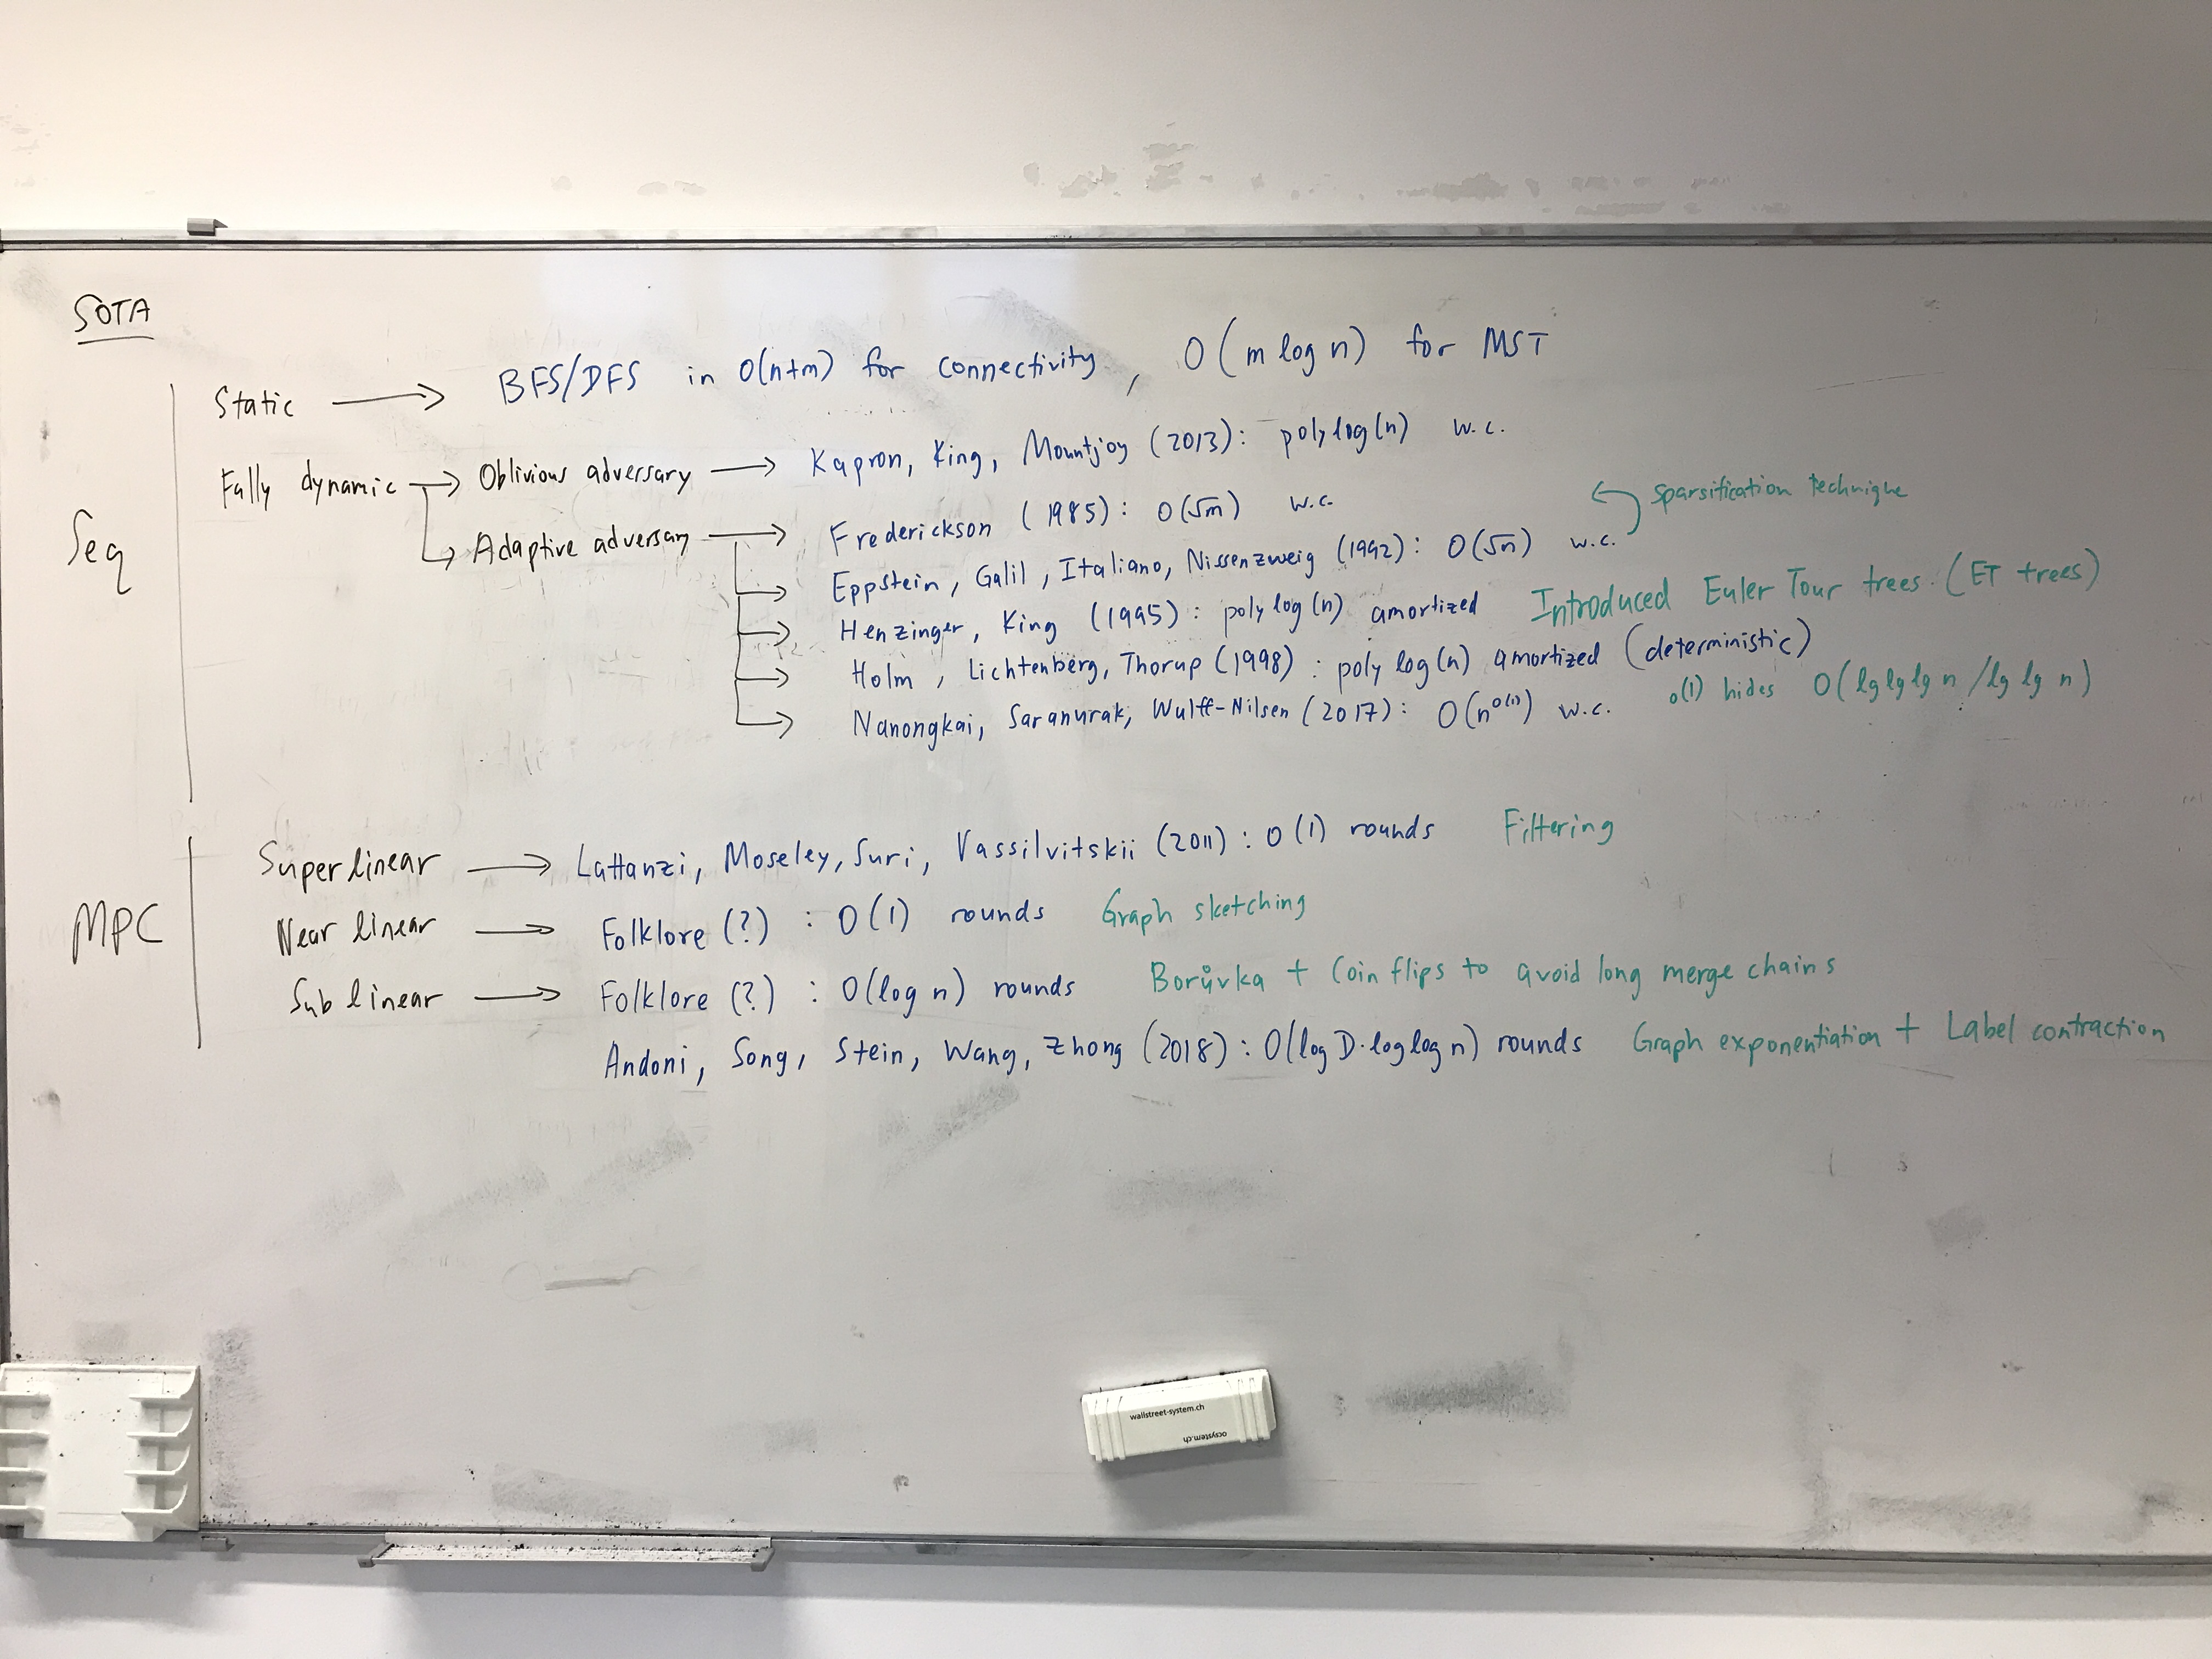 SOTA
Static → BFS/DFS in O(n+m) for connectivity, O(m log n) for MST
Seq
Fully dynamic → Oblivious adversary → Kapron, King, Mountjoy (2013): polylog(n) w.c.
→ Adaptive adversary → Frederickson (1985): O(√m) w.c.
→ Eppstein, Galil, Italiano, Nissenzweig (1992): O(√n) w.c. sparsification technique
→ Henzinger, King (1995): polylog(n) amortized Introduced Euler Tour trees. (ET trees)
→ Holm, Lichtenberg, Thorup (1998): poly log(n) amortized (deterministic)
→ Nanongkai, Saranurak, Wulff-Nilsen (2017): O(n^o(1)) w.c. o(1) hides O(lg lg lg n / lg lg n)
MPC
Superlinear → Lattanzi, Moseley, Suri, Vassilvitskii (2011): O(1) rounds Filtering
Near linear → Folklore (?) : O(1) rounds Graph sketching
Sublinear → Folklore (?) : O(log n) rounds Borůvka + Coin flips to avoid long merge chains
Andoni, Song, Stein, Wang, Zhong (2018): O(log D · log log n) rounds Graph exponentiation + Label contraction
wallstreet-system.ch
ocsystem.ch